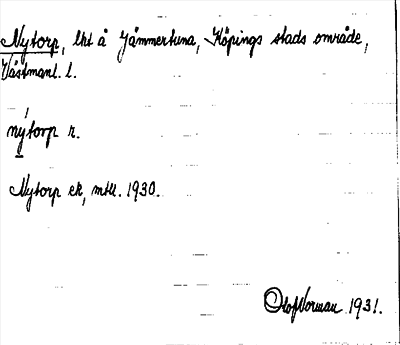 Nytorp, lht å Jämmertuna, Köpings stads område,
Västmanl. l.
nýtorp r.
Nytorp ek, mtl. 1930.
Olof Norman 1931.